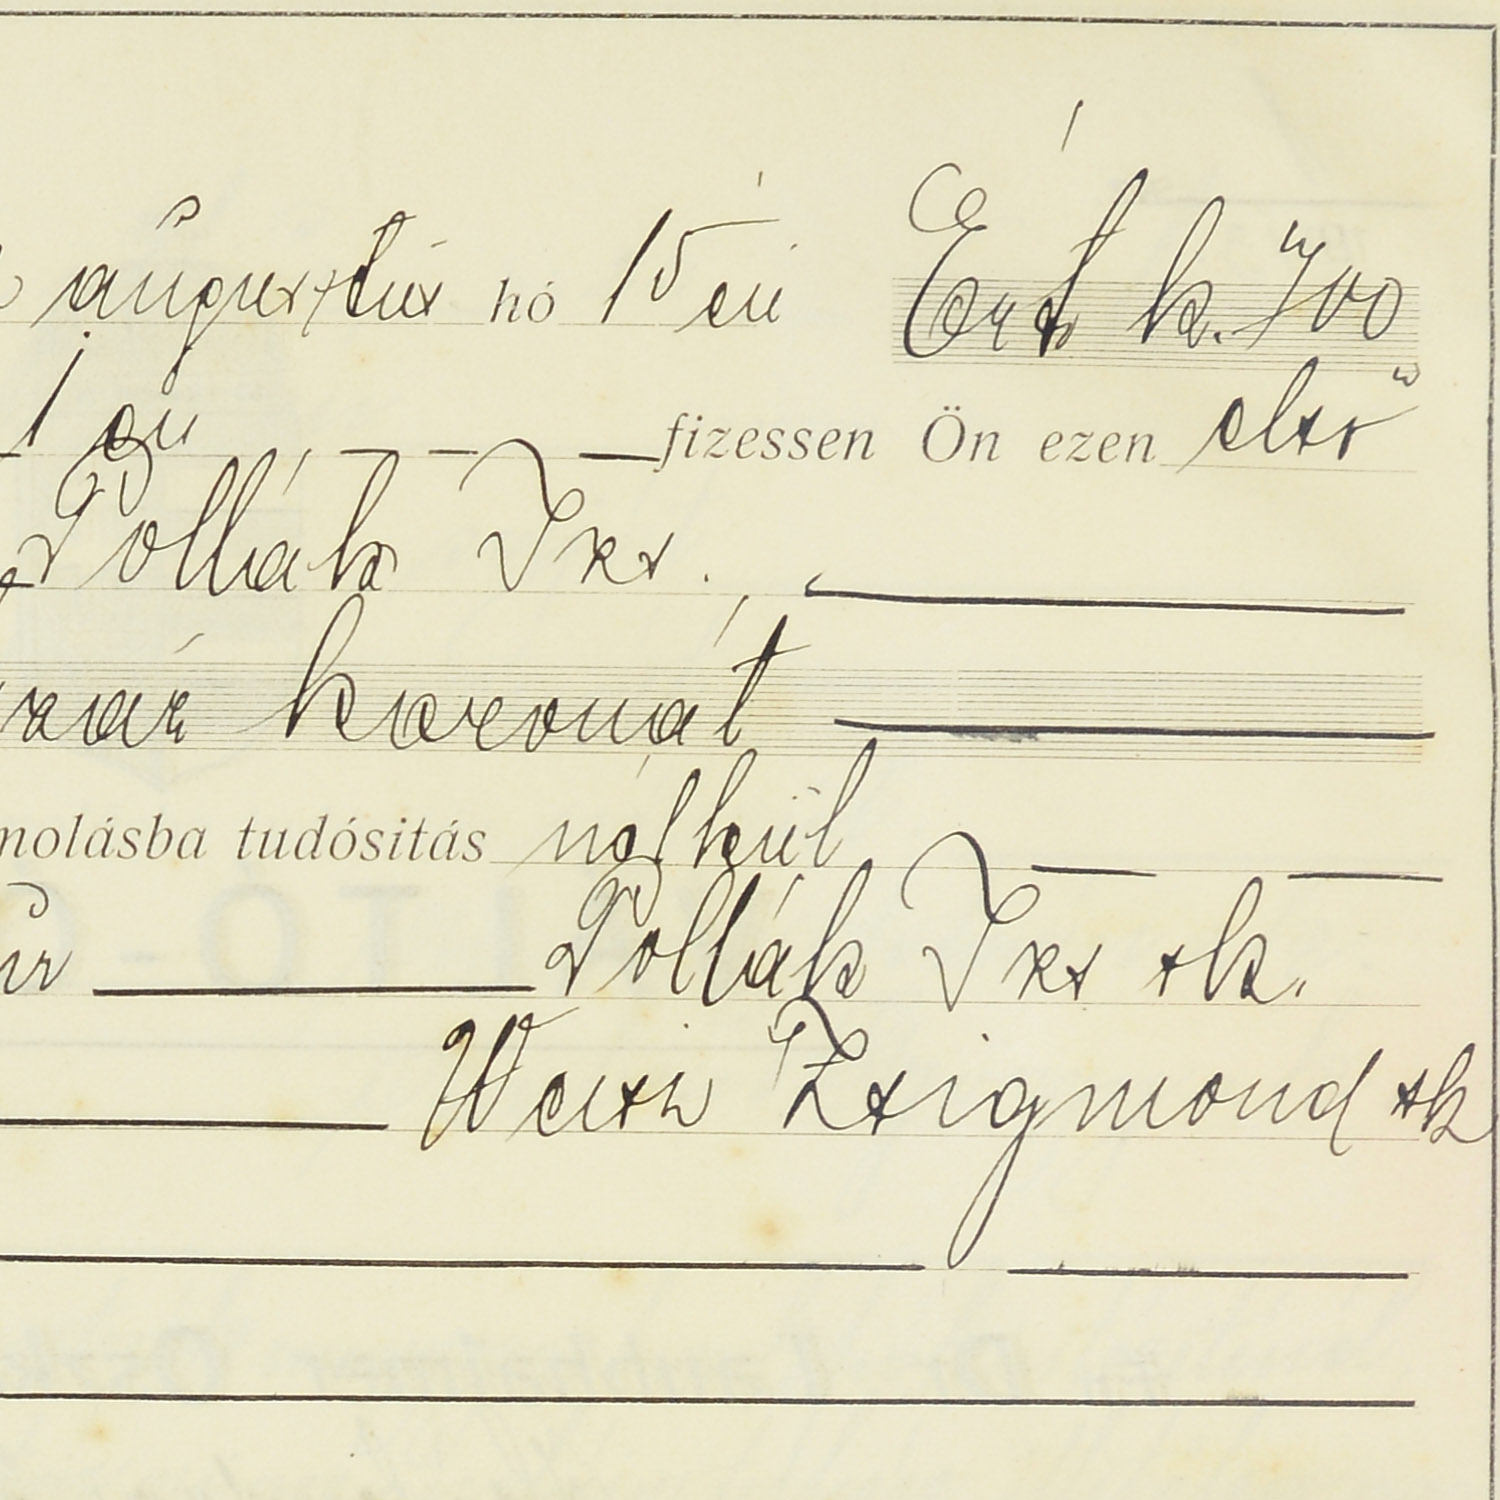 augusztus hó 15 én Ért k. 700
1 én fizessen Ön ezen első
Pollák Ign.
száz koronát
molásba tudósitás nélkül
úr Pollák Ign sk.
Weisz Zsigmond sk